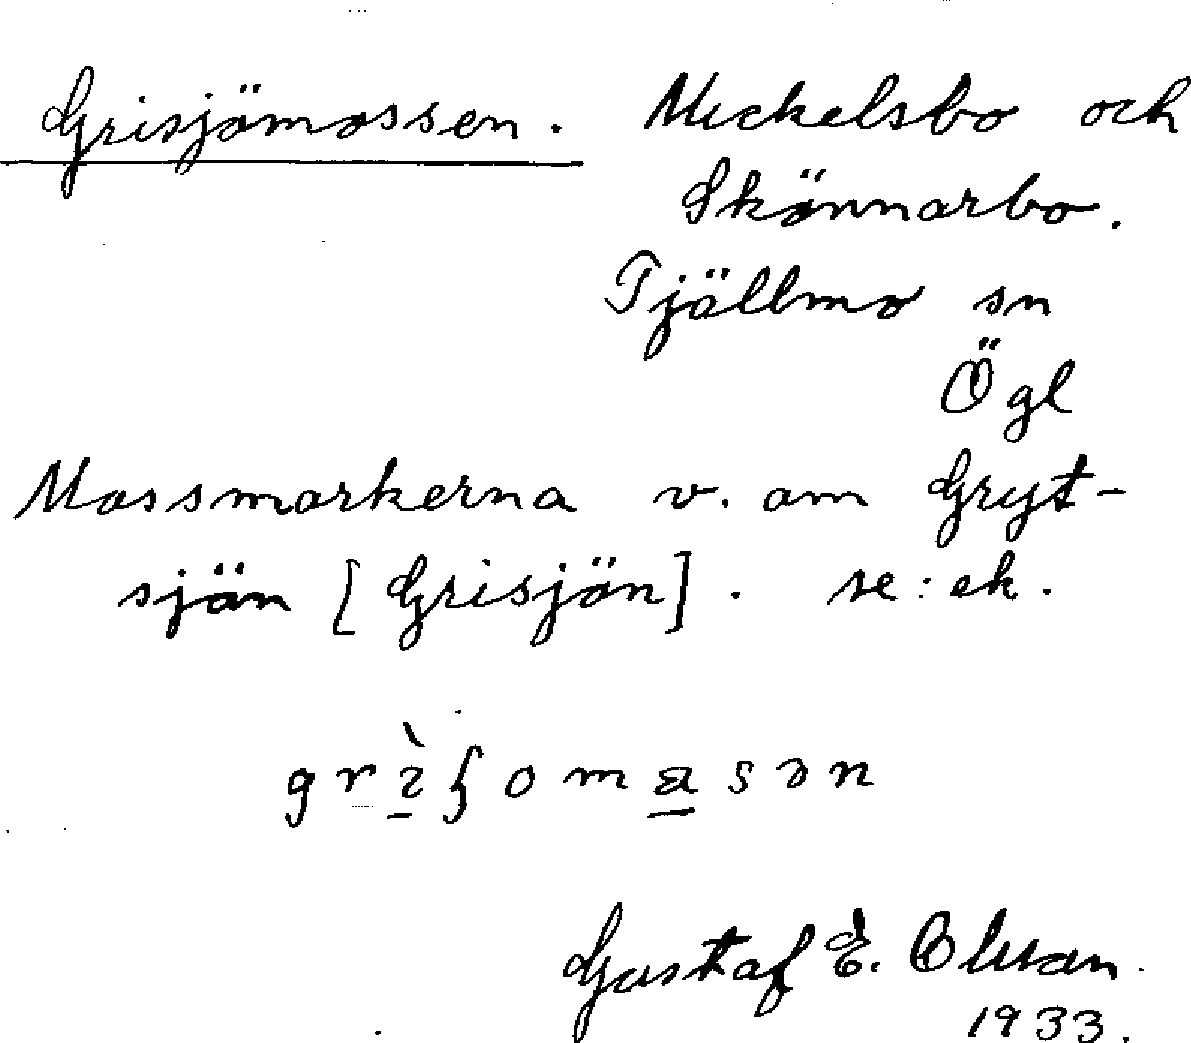 Grisjömossen. Mickelsbo och
Skönnarbo.
Tjällmo sn
Ögl
Mossmarkerna v. om Gryt-
sjön [Grisjön]. se: ek.
Gustaf E. Olson
1933.